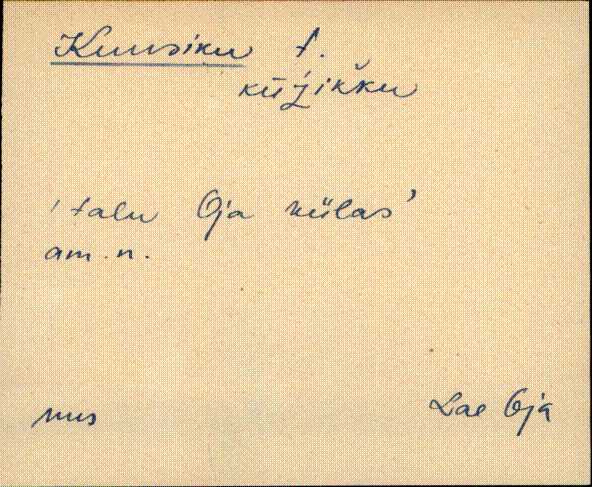 Kuusiku t.
kūʒikǩu
'talu Oja külas'
am. n.
Mus
Lae Oja